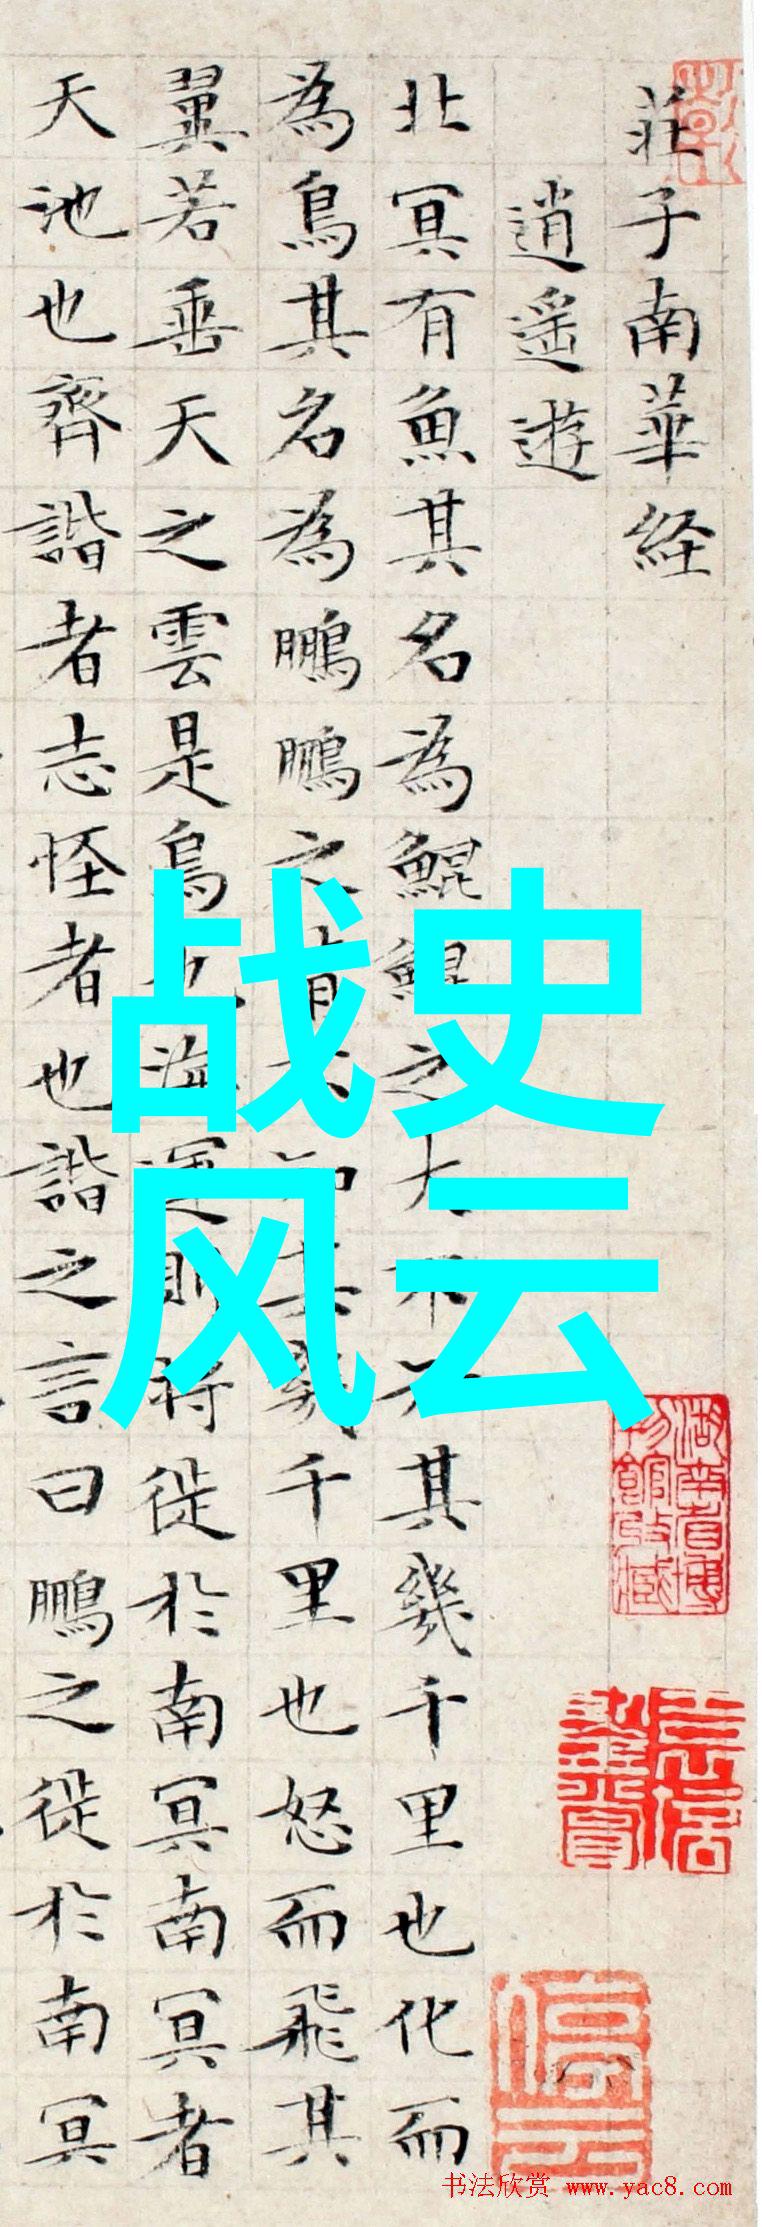 莊子南華経
逍遥遊
北冥有魚其名為鯤鯤之大不知其幾千里也化而
為鳥其名為鵬鵬之背不知其幾千里也怒而飛其
翼若垂天之雲是鳥也海運則将徙於南冥南冥者
天池也齊諧者志怪者也諧之言曰鵬之徙於南冥
战史
风云
湖南省博
物館收藏
停云
书法欣赏 www.yac8.com